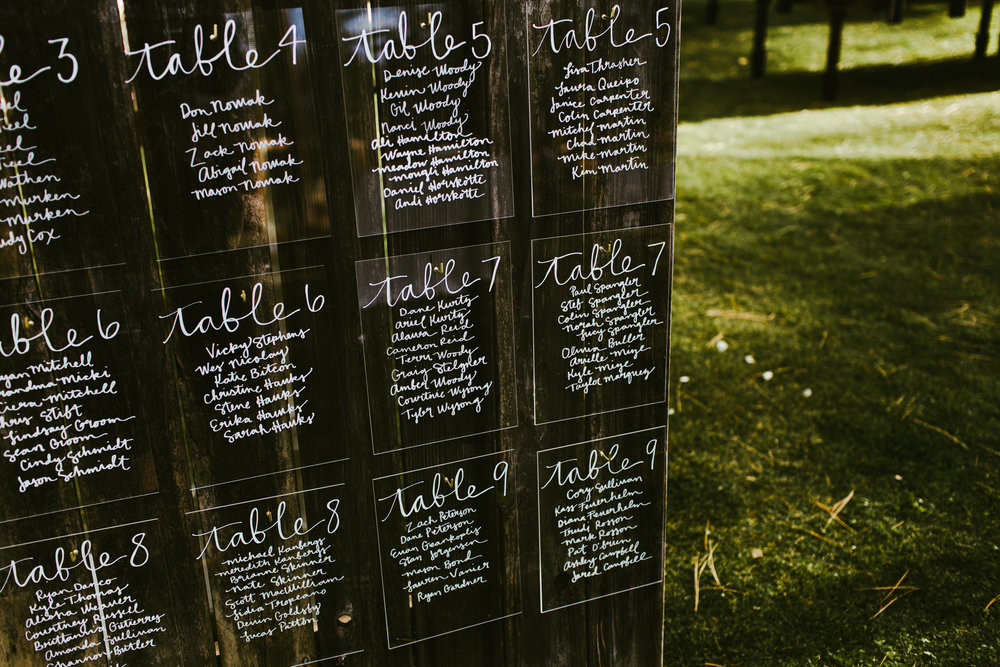 3
Wathen
Murken
Murken
Cox
table 4
Don Nowak
Jill Nowak
Zack Nowak
Abigail Nowak
Mason Nowak
table 5
Denise Woody
Kerrin Woody
Gil Woody
Nanci Woody
Ali Hamilton
Wayne Hamilton
meadow Hamilton
mongui Hamilton
Daniel Horskotte
Andi Horskotte
table 5
Lisa Thrasher
Laura Queipo
Janice Carpenter
Colin Carpenter
Mitchel Martin
Chad Martin
Mike Martin
Kim Martin
6
Mitchell
Micki
Mitchell
Stift
Lindsay Groom
Sean Groom
Cindy Schmidt
Jason Schmidt
table 6
Vicky Stephens
Wes Nicolay
Katie Bitcon
Christine Hawks
Steve Hawks
Erika Hawks
Sarah Hawks
table 7
Dane Kurtz
Ariel Kurtz
Alaura Reid
Cameron Reid
Terri Woody
Craig Stelzner
Amber Woody
Courtnie Wysong
Tyler Wysong
table 7
Paul Spangler
Stef Spangler
Colin Spangler
Norah Spangler
Lucy Spangler
Olivia Buller
Arielle Mize
Kyle Mize
Taylor Marquez
table 8
Ryan Danco
Kyle Thomas
Alisha Weaver
Courtney Russell
Brittany Gutierrez
Amanda Sullivan
Shannon Butler
table 8
Michael Kanbergs
Meredith Kanbergs
Brianne Skinner
Nate Skinner
Scott MacWilliam
Lidia Tropeano
Devin Goldsby
Lucas Patton
table 9
Zach Peterson
Dane Peterson
Evan Geankoplis
Stan Jorgensen
Mason Bond
Lauren Vanier
Ryan Gardner
table 9
Cory Sullivan
Kass Feuerhelm
Diana Feuerhelm
Trudy Rosson
Mark Rosson
Pat O'brien
Ashley Campbell
Jared Campbell